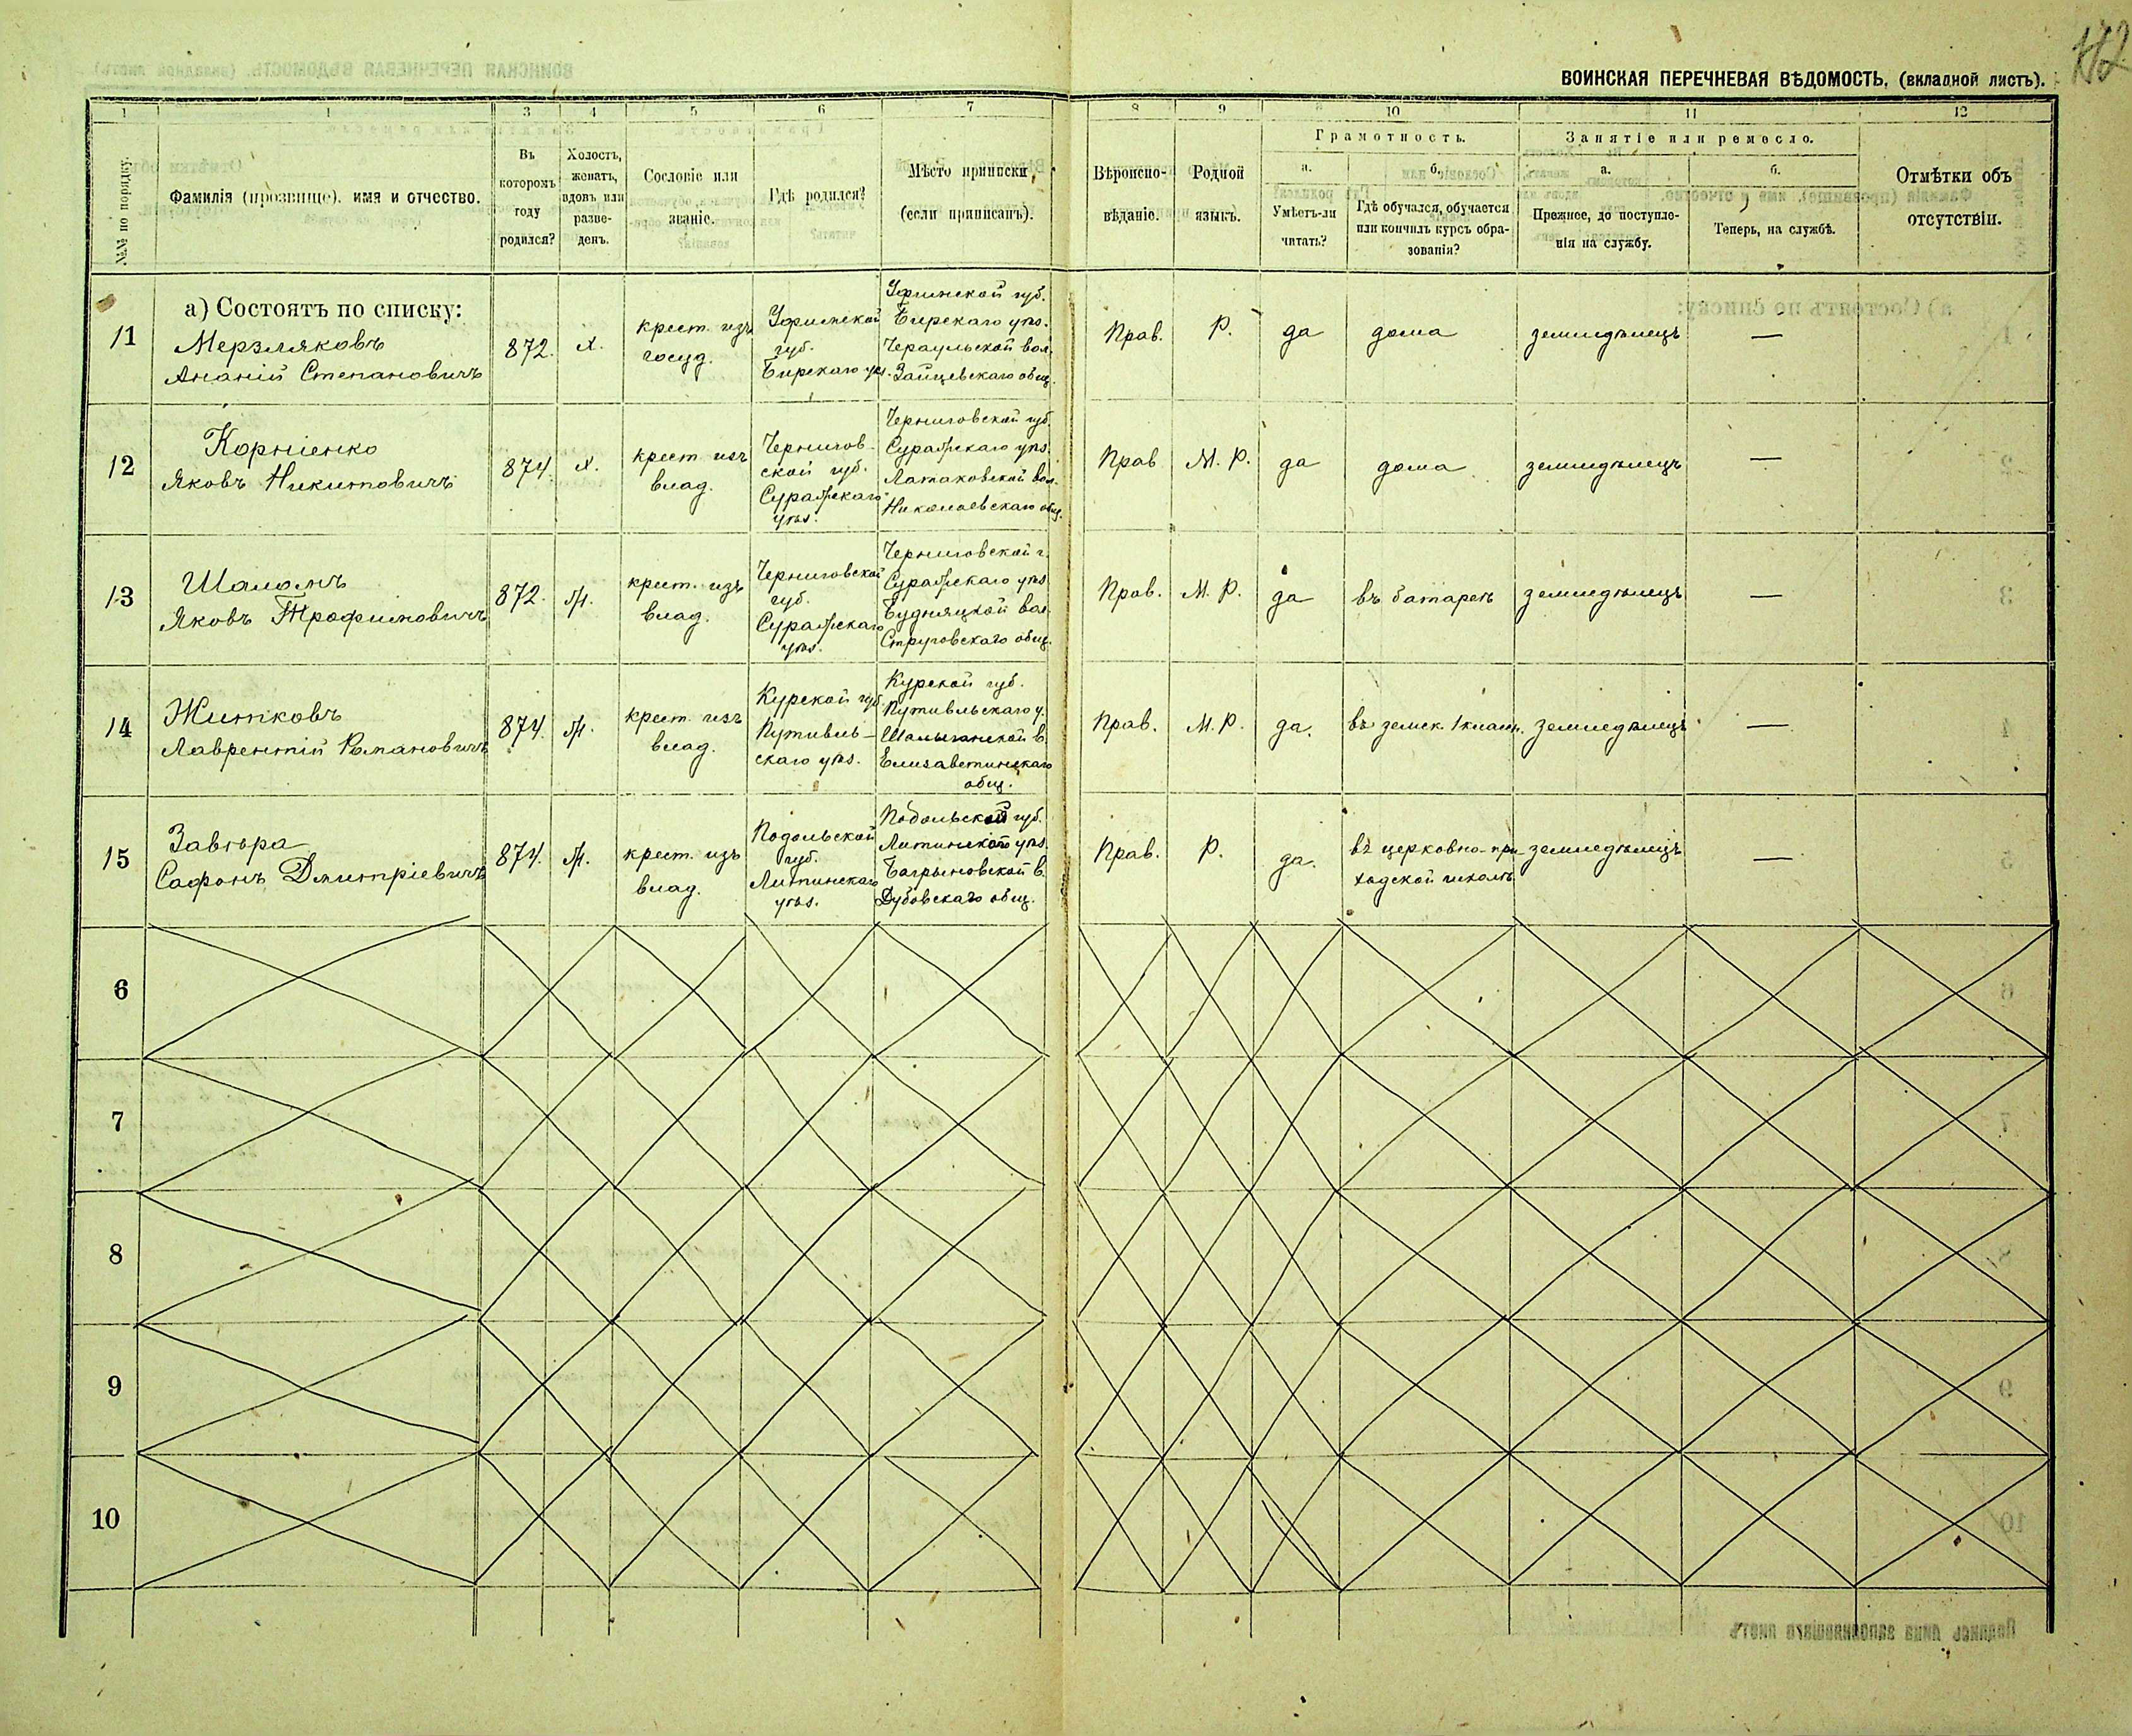 112
ВОИНСКАЯ ПЕРЕЧНЕВАЯ ВѢДОМОСТЬ, (вкладной листъ).
1 1 3 4 5 6 7 8 9 10 11 12
№№ по порядку.
Фамилія (прозвище), имя и отчество.
Въ
которомъ
году
родился?
Холостъ,
женатъ,
вдовъ или
разве-
денъ.
Сословіе или
званіе.
Гдѣ родился?
Мѣсто приписки,
(если приписанъ).
Вѣроиспо-
вѣданіе.
Родной
языкъ.
Грамотность.
а.
Умѣетъ-ли
читать?
б.
Гдѣ обучался, обучается
или кончилъ курсъ обра-
зованія?
Занятіе или ремесло.
а.
Прежнее, до поступле-
нія на службу.
б.
Теперь, на службѣ.
Отмѣтки объ
отсутствіи.
а) Состоятъ по списку:
11
Мерзляковъ
Ананій Степановичъ
872.
х.
крест. изъ
госуд.
Уфимской
губ.
Бирскаго уѣз.
Уфимской губ.
Бирскаго уѣз.
Чераульской вол.
Зайцевскаго общ.
Прав.
Р.
да
дома
земледѣлецъ
—
12
Корніенко
Яковъ Никитовичъ
874.
х.
крест. изъ
влад.
Чернигов-
ской губ.
Суражскаго
уѣз.
Черниговской губ.
Суражскаго уѣз.
Лотаковской вол.
Николаевскаго общ.
Прав
М. Р.
да
дома
земледѣлецъ
—
13
Шаломъ
Яковъ Трофимовичъ
872.
ж.
крест. изъ
влад.
Черниговской
губ.
Суражскаго
уѣз.
Черниговской г.
Суражскаго уѣз.
Будняцкой вол.
Струговскаго общ.
Прав.
М. Р.
да
въ батареѣ
земледѣлецъ
—
14
Житковъ
Лаврентій Романовичъ
874.
ж.
крест. изъ
влад.
Курской губ.
Путивль-
скаго уѣз.
Курской губ.
Путивльскаго у.
Шалыгинской в.
Елизаветинскаго
общ.
Прав.
М. Р.
да.
въ земск. 1 класн.
земледѣлецъ
—
15
Завгора
Сафонъ Дмитріевичъ
874.
ж.
крест. изъ
влад.
Подольской
губ.
Литинскаго
уѣз.
Подольской губ.
Литинскаго уѣз.
Багрыновской в.
Дубовскаго общ.
Прав.
Р.
да.
въ церковно-при-
ходской школѣ
земледѣлецъ
—
6
7
8
9
10